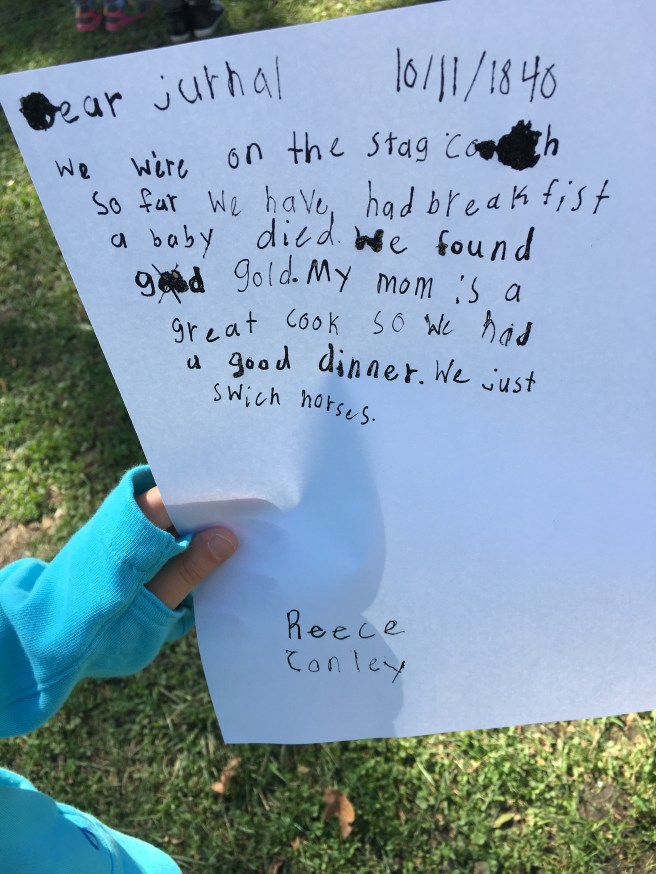 Dear jurnal 10/11/1840
We were on the stag coach
So far We have, had breakfist
a baby died. We found
good gold. My mom is a
great cook so we had
a good dinner. We just
swich horses.
Reece
Conley